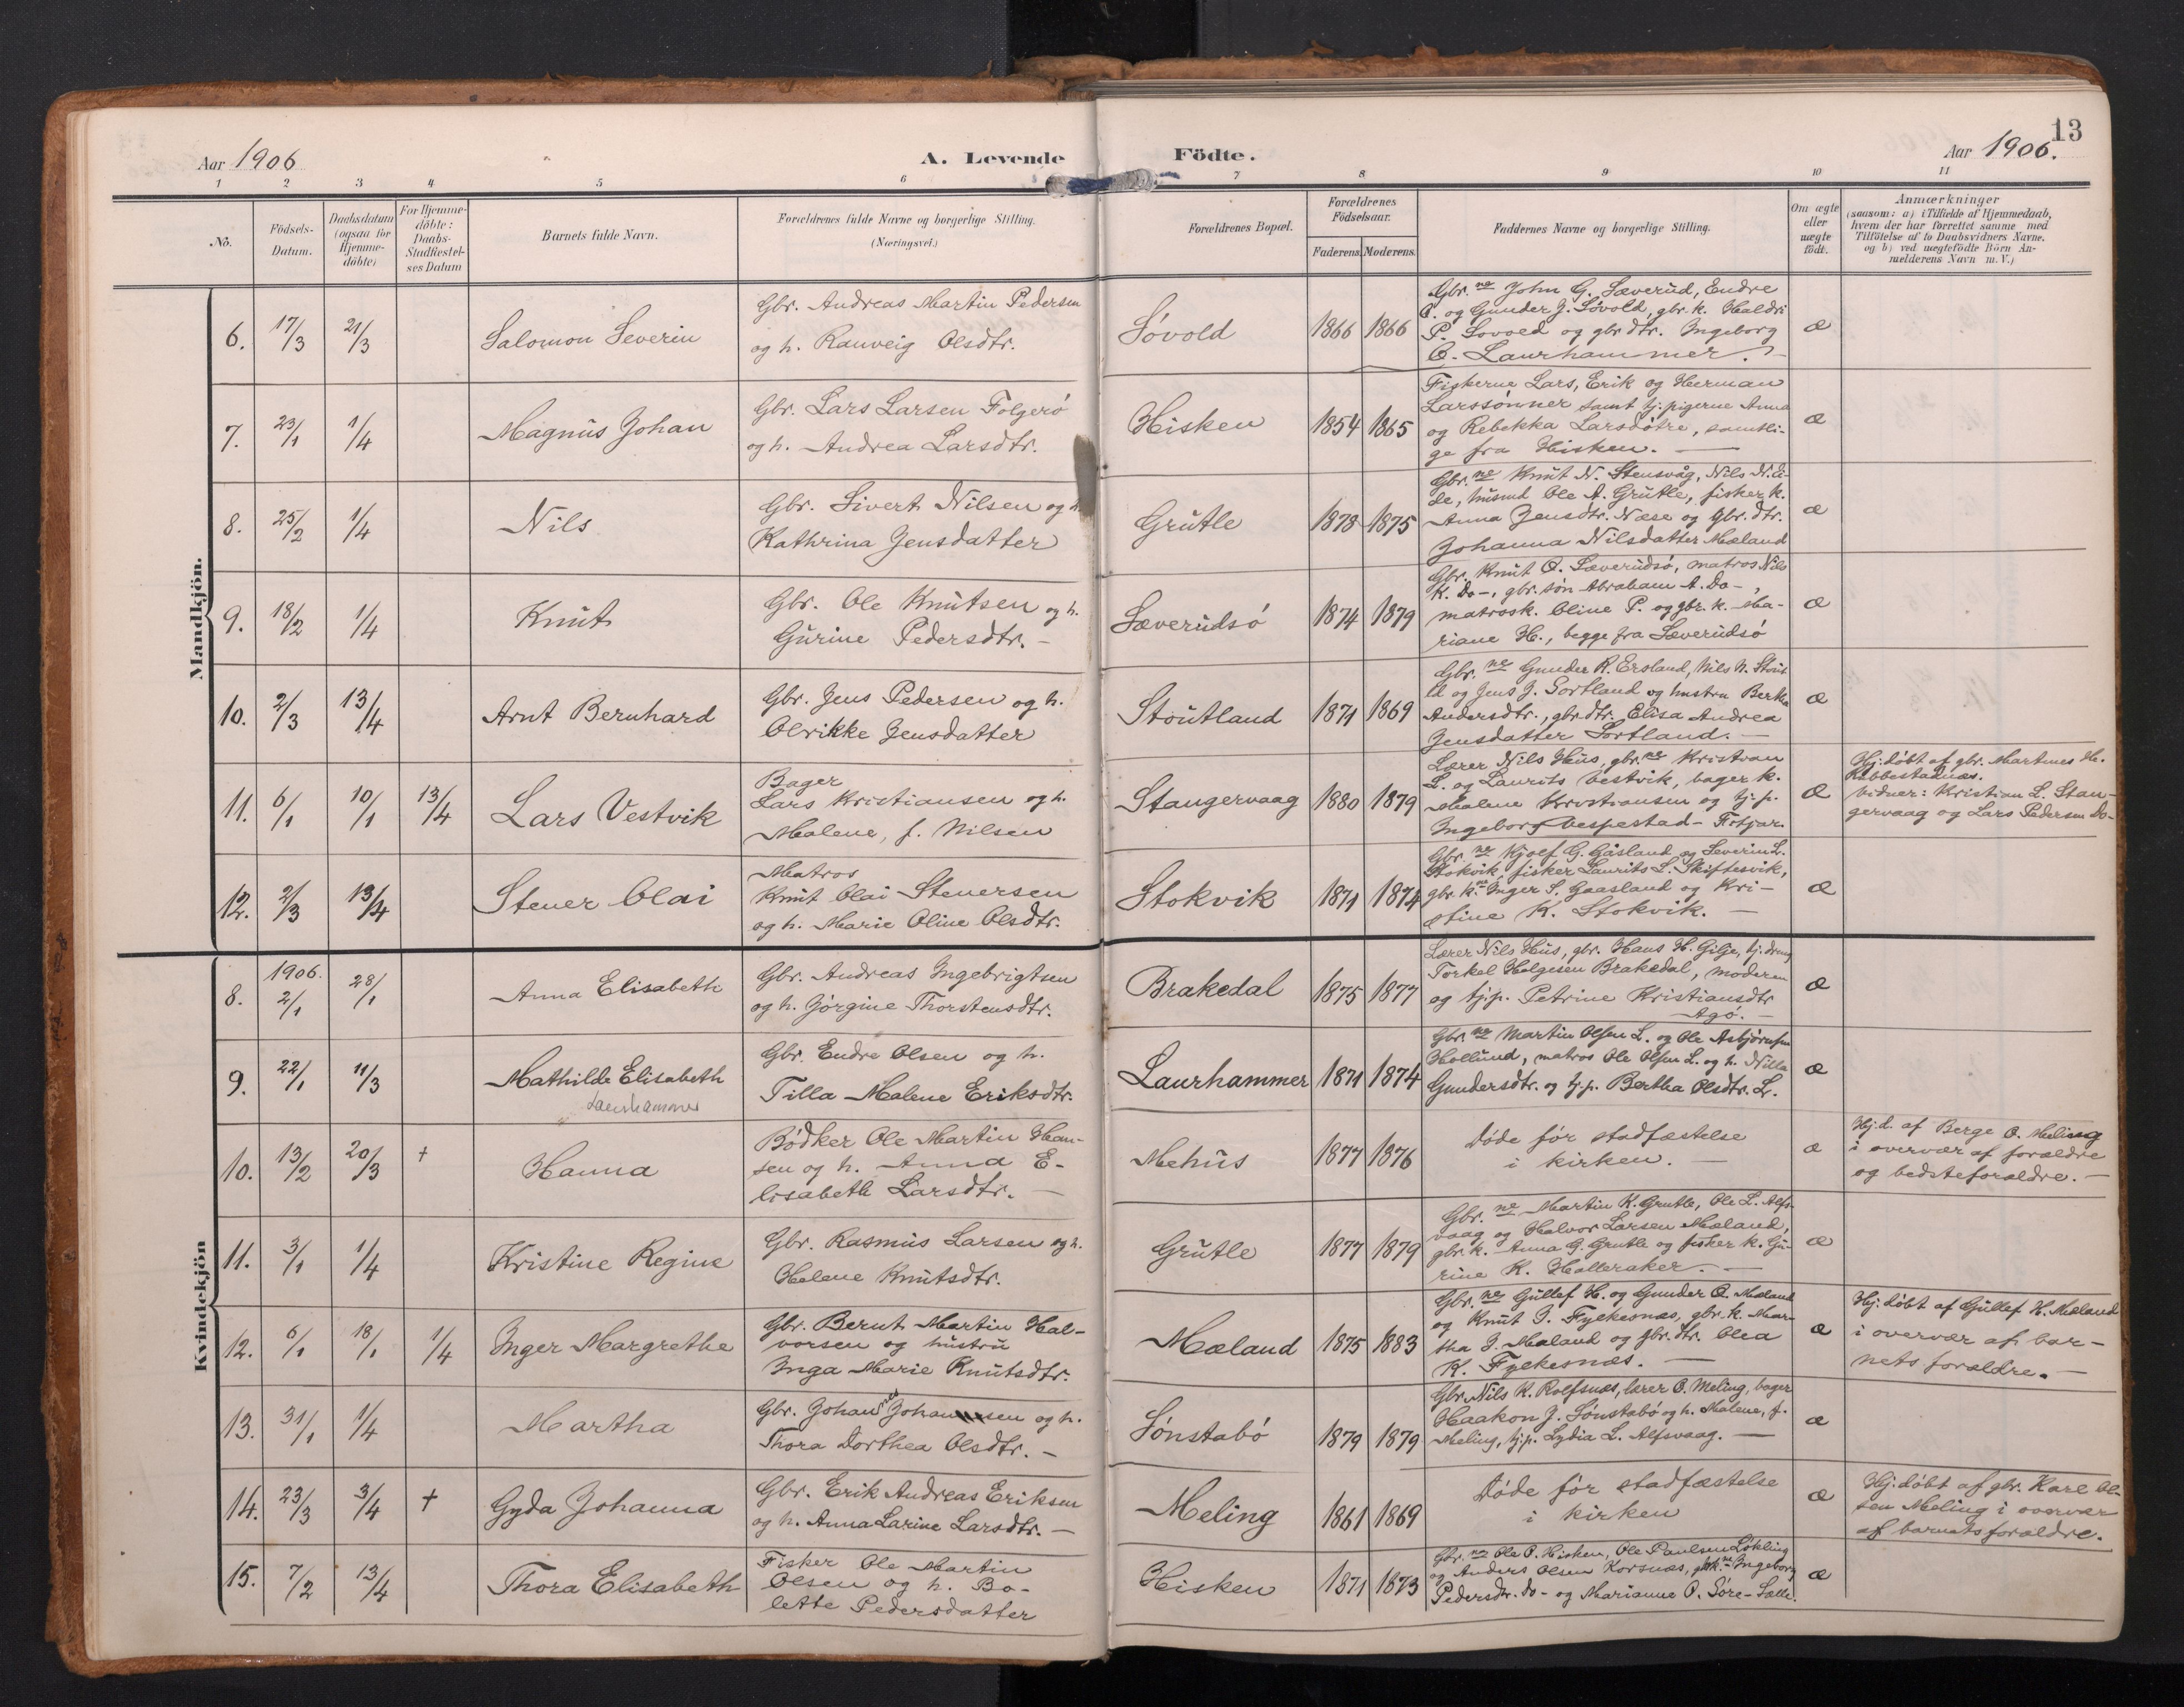 13
Aar 1906
A. Levende Födte.
Aar 1906.
1 2 3 4 5 6 7 8 9 10 11
No.
Födsels-
Datum.
Daabsdatum
(ogsaa for
Hjemme-
döbte)
For Hjemme-
döbte:
Daabs-
Stadfæstel-
ses Datum
Barnets fulde Navn.
Forældrenes fulde Navne og borgerlige Stilling.
(Næringsvei.)
Forældrenes Bopæl.
Forældrenes
Födselsaar.
Faderens. Moderens.
Faddernes Navne og borgerlige Stilling.
Om ægte
eller
uægte
födt.
Anmærkninger
(saasom: a) i Tilfælde af Hjemmedaab,
hvem der har forrettet samme med
Tilföielse af to Daabsvidners Navne,
og b) ved uægtefödte Börn An-
melderens Navn m. V.)
Mandkjön.
6. 17/3 21/3
Salomon Severin
Gbr. Andreas Martin Pedersen
og h. Ranveig Olsdtr.
Søvold
1866 1866
Gbr.ne John G. Sæverud, Endre
O. og Gunder J. Søvold, gbr. k. Haldri
P. Sovold og gbr. dtr. Ingeborg
O. Laurhammer. -
æ
7. 23/1 1/4
Magnus Johan
Gbr. Lars Larsen Folgerö
og h. Andrea Larsdtr.
Hisken
1854 1865
Fiskerne Lars, Erik og Herman
Larssønner samt tj. pigerne Anna
og Rebekka Larsdøtre, samtli-
ge fra Hisken. -
æ
8. 25/2 1/4
Nils
Gbr. Sivert Nilsen og h.
Kathrina Jensdatter
Grutle
1878 1875
Gbr.ne Knut N. Stensvåg, Nils N. Ei-
de, husmd Ole A. Grutle, fisker k.
Anna Jensdtr. Næse og Gbr. dtr.
Johanna Nilsdatter Mæland
æ
9. 18/2 1/4
Knut
Gbr. Ole Knutsen og h.
Gurine Pedersdtr. -
Sæverudsø
1874 1879
Gbr. Knut O. Sæverudsø, matros Nils
K. Do-, gbr. søn Abraham A. Do-,
matrosk. Oline P. og gbr. k. Ma-
riane H., begge fra Sæverudsø
æ
10. 2/3 13/4
Arnt Bernhard
Gbr. Jens Pedersen og h.
Olrikke Jensdatter
Stoutland
1871 1869
Gbr.ne Gunder R. Ersland, Nils N. Stout
ld og Jens J. Sortland og hustru Bertha
Andersdtr., gbr. dtr. Elisa Andrea
Jensdatter Sortland. -
æ
11. 6/1 10/1 13/4
Lars Vestvik
Bager
Lars Kristiansen og h.
Malene, f. Nilsen
Stangervaag
1880 1879
Lærer Nils Hus, gbr.ne Kristian
L. og Laurits Vestvik, bager k.
Malene Kristiansen og tj. p.
Ingeborg Vespestad - Fitjar.
æ
Hj. døbt af gbr. Martines H.
Rubbestadnæs.
Vidner: Kristian L. Stan-
gervaag og Lars Pedersen Do-
12. 2/3 13/4
Stener Olai
Matros
Knut Olai Stenersen
og h. Marie Oline Olsdtr.
Stokvik
1871 1874
Gbr.ne Kjolf G. Gåsland og Severin L.
Stokvik, fisker Laurits L. Skiftesvik,
gbr. k.ne Inger S. Gaasland og Kri-
stine K. Stokvik. -
æ
Kvindekjön
8. 1906. 2/1 28/1
Anna Elisabeth
Gbr. Andreas Ingebrigtsen
og h. Jørgine Thorstensdtr.
Brakedal
1875 1877
Lærer Nils Hus, gbr. Hans H. Gilje, tj. dreng
Torkel Helgesen Brakedal, moderen
og tj. p. Petrine Kristiansdtr
Agø. -
æ
9. 22/1 11/3
Mathilde Elisabeth
Laurhammer
Gbr. Endre Olsen og h.
Tilla Malene Eriksdtr.
Laurhammer
1871 1874
Gbr.ne Martin Olsen L. og Ole Asbjørnsen
Hollund, matros Ole Olsen L. og h. Nilla
Gundersdtr. og tj. p. Bertha Olsdtr. L.
æ
10. 13/2 20/3 +
Hanna
Bødker Ole Martin Han-
sen og h. Anna E-
lisabeth Larsdtr. -
Mehus
1877 1876
Døde før stadfæstelse
i kirken. -
æ
Hj. d. af Berge O. Meling
i overvær af forældre
og bedsteforældre. -
11. 3/1 1/4
Kristine Regine
Gbr. Rasmus Larsen og h.
Helene Knutsdtr.
Grutle
1877 1879
Gbr.ne Martin K. Grutle, Ole L. Alfs-
vaag og Halvor Larsen Mæland,
gbr. k. Anna G. Grutle og fisker k. Gu-
rine K. Halleraker. -
æ
12. 6/1 18/1 1/4
Inger Margrethe
Gbr. Bernt Martin Hal-
vorsen og hustru
Inga Marie Knutsdtr.
Mæland
1875 1883
Gbr.ne Gullef H. og Gunder O. Mæland
og Knut J. Fyekesnæs, gbr. k. Mar-
tha J. Mæland og gbr. dtr. Olea
K. Fyekesnæs. -
æ
Hj. døbt af Gullef H. Mæland
i overvær af bar-
nets forældre. -
13. 31/1 1/4
Martha
Gbr. Johan Johannesen og h.
Thora Dorthea Olsdtr. -
Sønstabø
1879 1879
Gbr. Nils K. Rolfsnæs, lærer O. Meling, bager
Haakon J. Sønstabø og h. Malene, f.
Meling, tj. p. Lydia L. Alfsvaag. -
æ
14. 23/3 3/4 +
Gyda Johanna
Gbr. Erik Andreas Eriksen
og h. Anna Larine Larsdtr. -
Meling
1861 1869
Døde før stadfæstelse
i kirken
æ
Hj. døbt af gbr. Karl Ol-
sen Meling i overvær
af barnets forældre.
15. 7/2 13/4
Thora Elisabeth
Fisker Ole Martin
Olsen og h. Bo-
lette Pedersdatter
Hisken
1871 1873
Gbr.ne Ole P. Hisken, Ole Paulsen Løkling
og Anders Olsen Korsnæs, gbr. k.ne Ingeborg
Pedersdtr. Do- og Marianne O. Søre-Salle.
æ